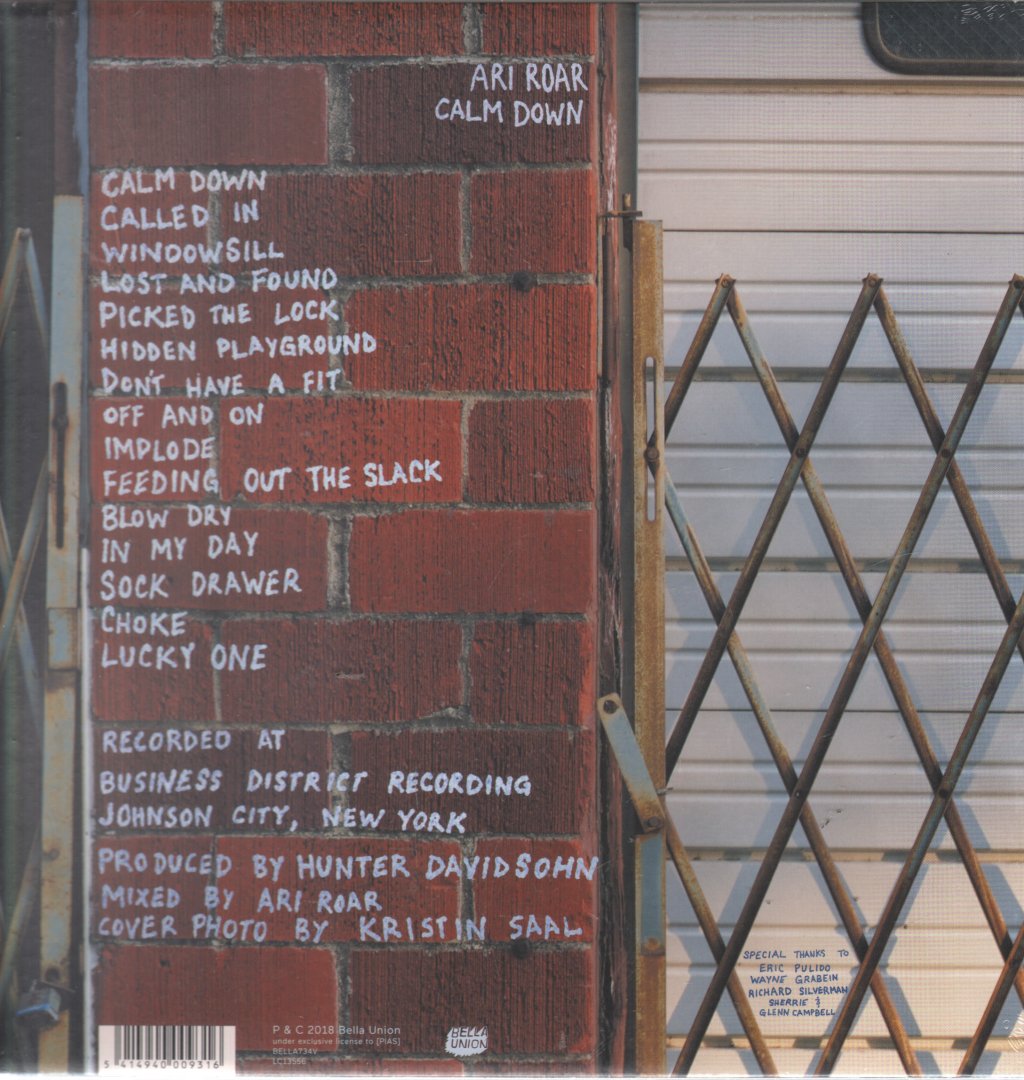 ARI ROAR
CALM DOWN
CALM DOWN
CALLED IN
WINDOWSILL
LOST AND FOUND
PICKED THE LOCK
HIDDEN PLAYGROUND
DON'T HAVE A FIT
OFF AND ON
IMPLODE
FEEDING OUT THE SLACK
BLOW DRY
IN MY DAY
SOCK DRAWER
CHOKE
LUCKY ONE
RECORDED AT
BUSINESS DISTRICT RECORDING
JOHNSON CITY, NEW YORK
PRODUCED BY HUNTER DAVIDSOHN
MIXED BY ARI ROAR
COVER PHOTO BY KRISTIN SAAL
SPECIAL THANKS TO
ERIC PULIDO
WAYNE GRABEIN
RICHARD SILVERMAN
SHERRIE &
GLENN CAMPBELL
5 414940 009316
P & C 2018 Bella Union
under exclusive license to [PIAS]
BELLA734V
LC13556
BELLA
UNION